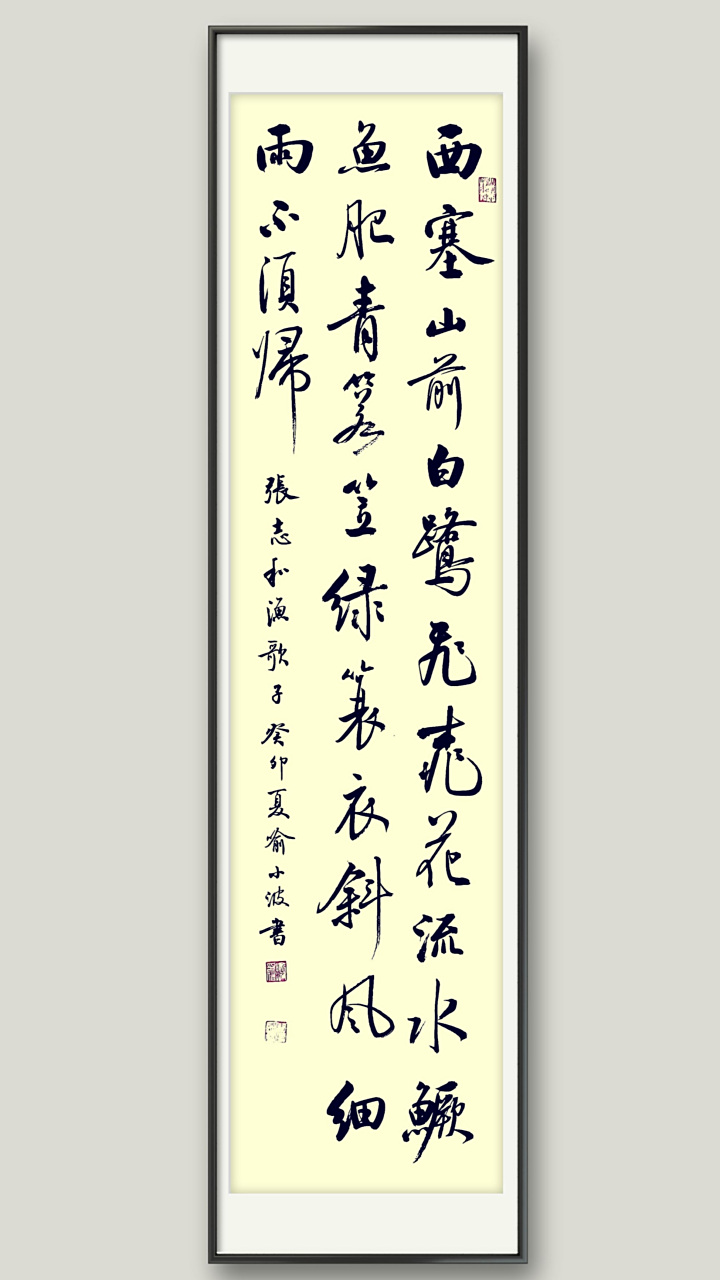 西塞山前白鷺飛桃花流水鱖
魚肥青箬笠綠簑衣斜風細
雨不須歸
張志和漁歌子癸卯夏俞小波書